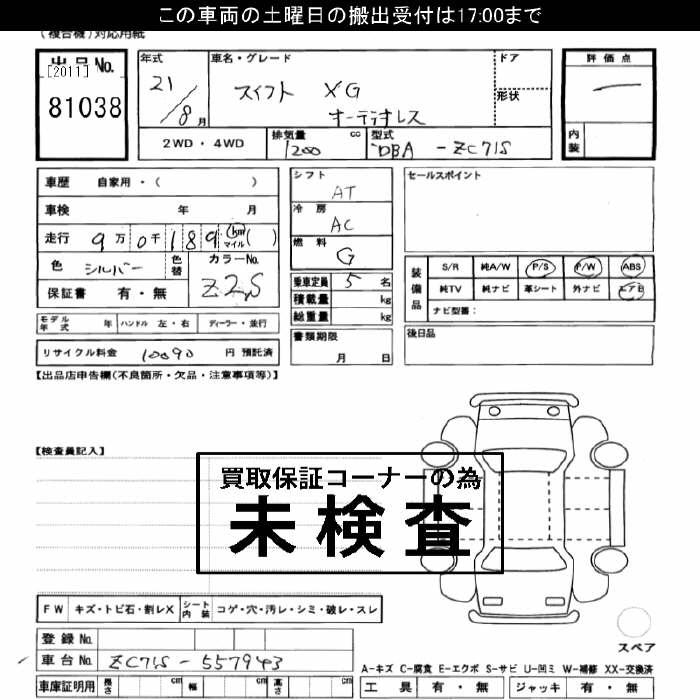 この車両の土曜日の搬出受付は17:00まで
(複合機)対応用紙
出品No.
[2011]
81038
年式
21/8月
車名・グレード
スイフト XG
オーディオレス
ドア
形状
評価点
内装
2WD・4WD
排気量 cc
1200
型式
DBA - ZC71S
車歴 自家用・( )
車検 年 月
走行 9万0千189 km マイル ( )
色 シルバー 色替
カラーNo.
Z2S
保証書 有・無
シフト
AT
冷房
AC
燃料
G
乗車定員 5 名
積載量 kg
総重量 kg
書類期限
月 日
セールスポイント
装備品
S/R 純A/W P/S P/W ABS
純TV 純ナビ 革シート 外ナビ エアB
ナビ型番:
後日品
モデル年式 年 ハンドル 左・右 ディーラー・並行
リサイクル料金 10090 円 預託済
【出品店申告欄(不良箇所・欠品・注意事項等)】
【検査員記入】
買取保証コーナーの為
未検査
FW キズ・トビ石・割レX シート内装 コゲ・穴・汚レ・シミ・破レ・スレ
登録No.
車台No. ZC71S - 557943
車庫証明用 長さ cm 幅 cm 高さ cm
スペア
A-キズ C-腐食 E-エクボ S-サビ U-凹ミ W-補修 XX-交換済
工具 有・無 ジャッキ 有・無